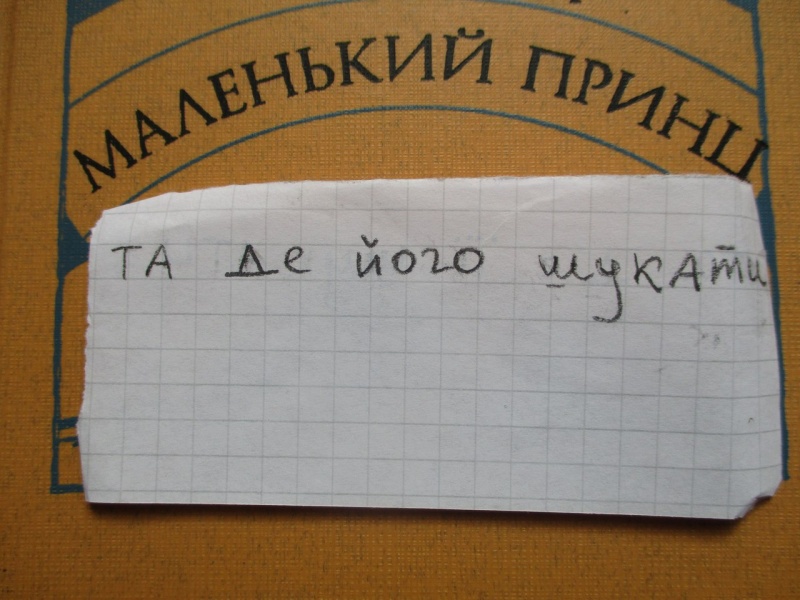 МАЛЕНЬКИЙ ПРИНЦ
ТА Де його шукАти